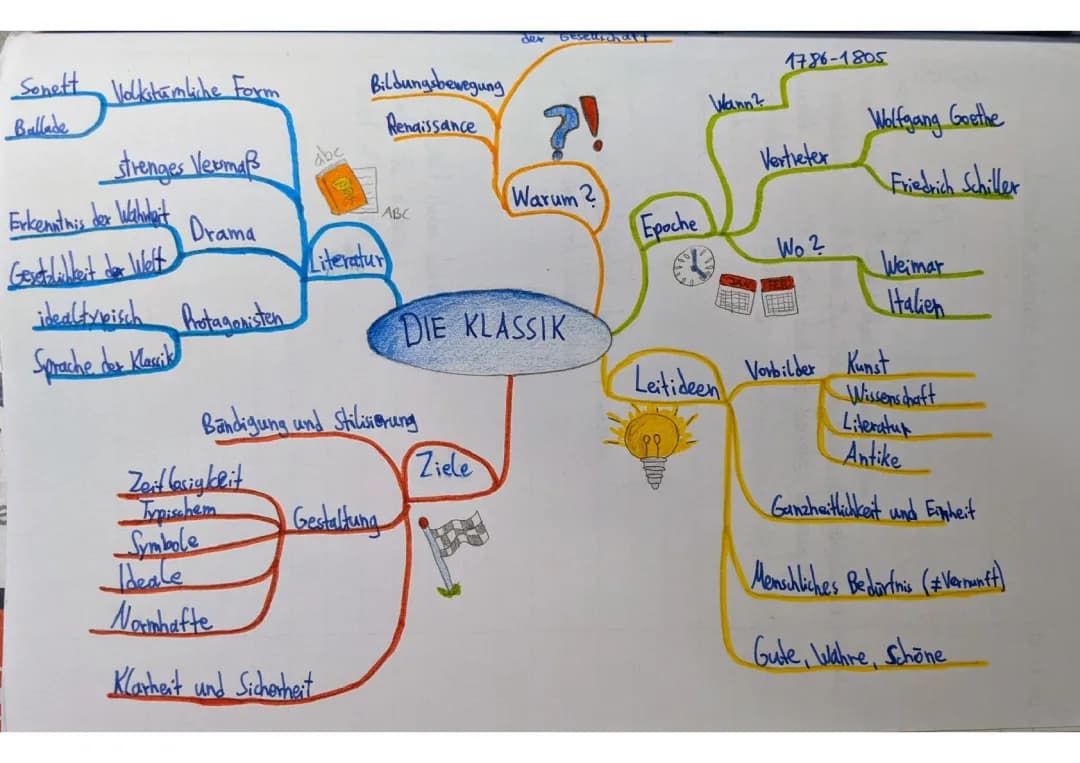 der Gesellschaft
Bildungsbewegung
Renaissance
Warum?
?!
1786-1805
Wann?
Wolfgang Goethe
Vertreter
Friedrich Schiller
Epoche
Wo?
Weimar
Italien
JAN
FEB
Sonett
Volkstümliche Form
Ballade
strenges Versmaß
Erkenntnis der Wahrheit
Drama
Gesetzlichkeit der Welt
Literatur
idealtypisch
Protagonisten
Sprache der Klassik
abc
ABC
DIE KLASSIK
Leitideen
Vorbilder
Kunst
Wissenschaft
Literatur
Antike
Ganzheitlichkeit und Einheit
Menschliches Bedürfnis (≠Vernunft)
Gute, Wahre, Schöne
Bändigung und Stilisierung
Ziele
Zeitlosigkeit
Typischem
Gestaltung
Symbole
Ideale
Normhafte
Klarheit und Sicherheit